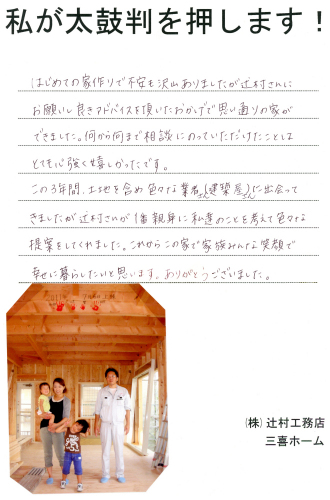 私が太鼓判を押します！
はじめての家作りで不安も沢山ありましたが辻村さんに
お願いし良きアドバイスを頂いたおかげで思い通りの家が
できました。何から何まで相談にのっていただけたことは
とても心強く嬉しかったです。
この3年間、土地を含め色々な業者さん(建築屋さん)に出会って
きましたが辻村さんが1番親身に私達のことを考えて色々な
提案をしてくれました。これからこの家で家族みんな笑顔で
幸せに暮らしたいと思います。ありがとうございました。
(株)辻村工務店
三喜ホーム